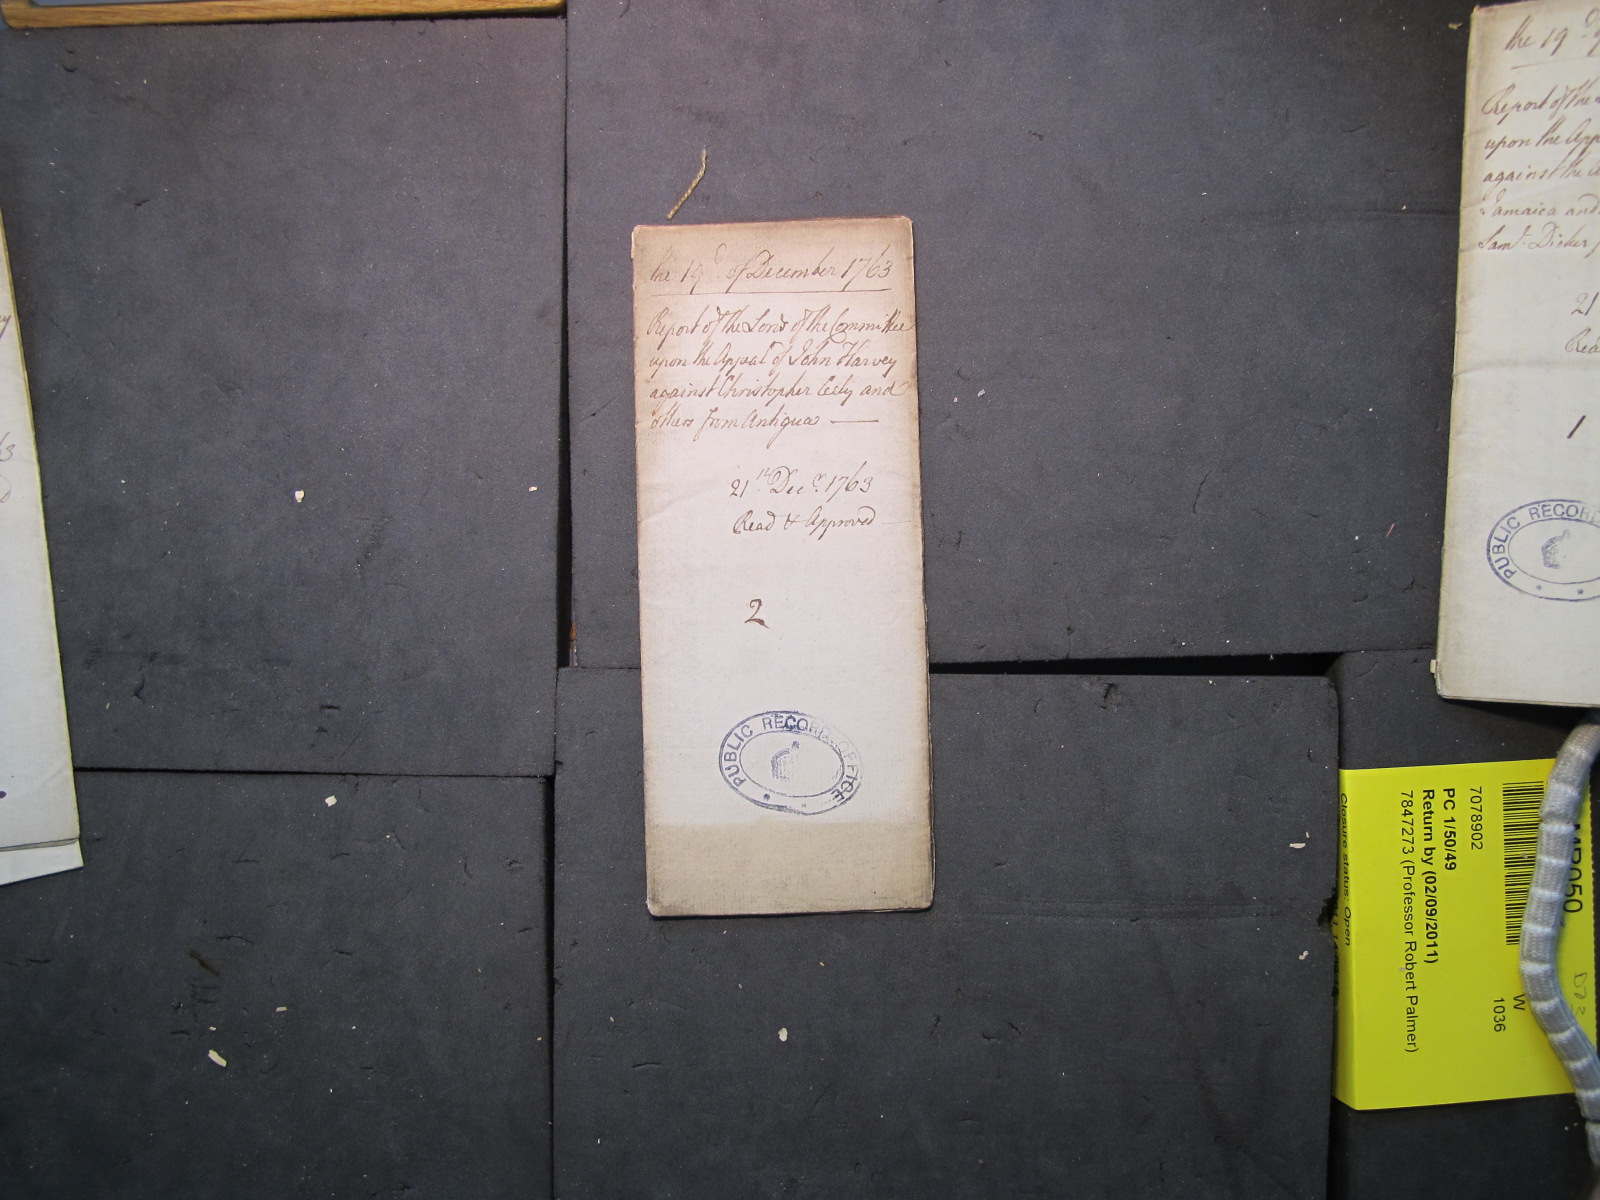 the 19th of December 1763
Report of the Lords of the Committee
upon the Appeal of John Harvey
against Christopher Eely and
others from Antigua
21st Decr. 1763
Read & Approved
2
PUBLIC RECORD OFFICE
the 19
Report of the
upon the App
against the
Jamaica and
Saml. Dicker
21
Rea
1
PUBLIC RECOR
7078902
PC 1/50/49
Return by (02/09/2011)
7847273 (Professor Robert Palmer)
Closure status: Open
W
1036